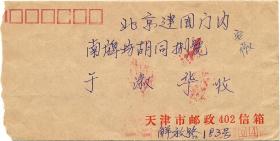 北京建国门内
南牌坊胡同
于淑华收
天津市邮政402信箱
解放路183号